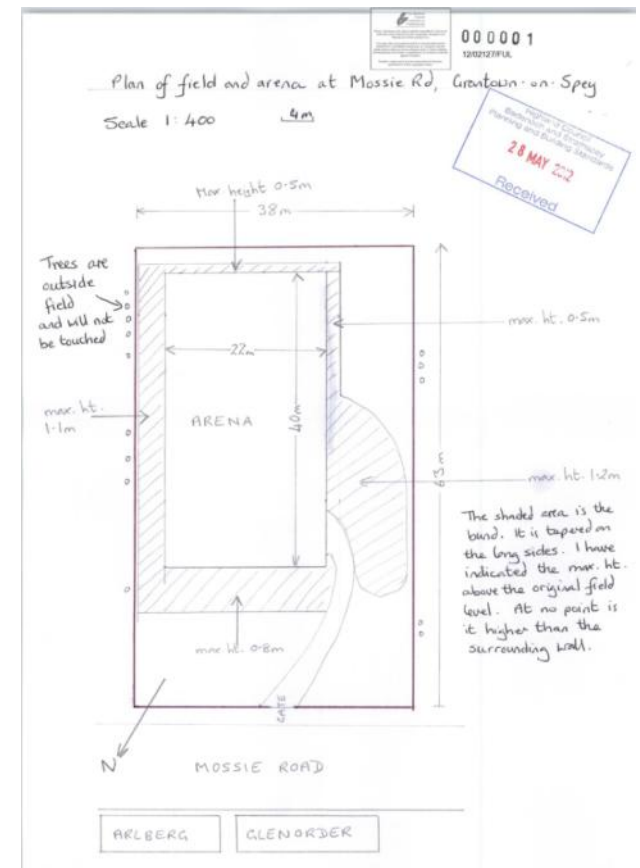 000001
12/02127/FUL
Plan of field and arena at Mossie Rd, Grantown-on-Spey
Scale 1:400 4m
Highland Council
Badenoch and Strathspey
Planning and Building Standards
28 MAY 2012
Received
Max height 0.5m
38m
Trees are
outside
field
and will not
be touched
max. ht. 0.5m
22m
max. ht.
1.1m
ARENA
40m
63m
max. ht. 1.2m
The shaded area is the
bund. It is tapered on
the long sides. I have
indicated the max. ht.
above the original field
level. At no point is
it higher than the
surrounding wall.
max ht. 0.8m
GATE
N
MOSSIE ROAD
ARLBERG
GLENORDER